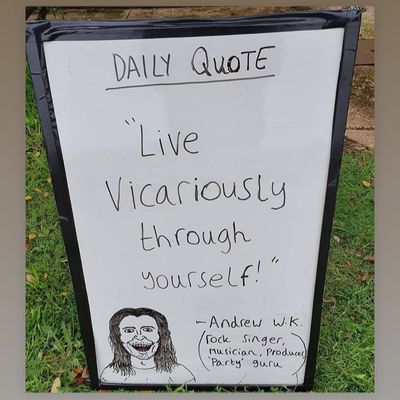 DAILY QUOTE
"Live
Vicariously
through
yourself!"
- Andrew W.K.
(rock singer,
Musician, Producer,
'Party' guru)